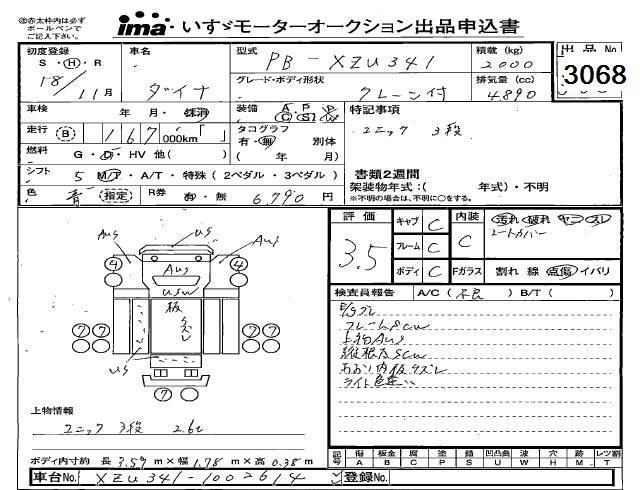 ㊟赤太枠内は必ず
ボールペンで
ご記入下さい。
ima いすゞモーターオークション出品申込書
初度登録 車名 型式 PB-XZU341 積載 (kg) 2000 出品No
S・H・R
18/11月 ダイナ グレード・ボディ形状 クレーン付 排気量 (cc) 4890 3068
車検 年 月・抹消 装備 A P
特記事項
走行 B 167 000km 「 」 タコグラフ 有・無 別体 ( 年 月)
ユニック 3段
燃料 G・D・HV 他( )
シフト 5 M/T・A/T・特殊 (2ペダル・3ペダル)
書類2週間
架装物年式:( 年式)・不明
※不明の場合は、不明に○をする。
色 青 指定 R券 有・無 6,790 円
評価 3.5 キャブ C 内装 C 汚れ 破れ ヤニ スレ
シートカバー
フレーム C
ボディ C Fガラス 割れ 線 点傷 イバリ
検査員報告 A/C(不良) B/T( )
フレームSCW
上物AUS
縦根太SCW
あおり内板クズレ
AUS US AUS
4 AUS 4
USW
板 クズレ
7 7 7 7
US
7
上物情報
ユニック 3段 2.6t
ボディ内寸約 長 3.59 m×幅 1.78 m×高 0.38 m
記号 傷 A 板金 B 腐 C 塗 P 錆 S 凹凸曲 U 波 W 穴 H 欠 M レツ割 T
車台No. XZU341-1002614 登録No.